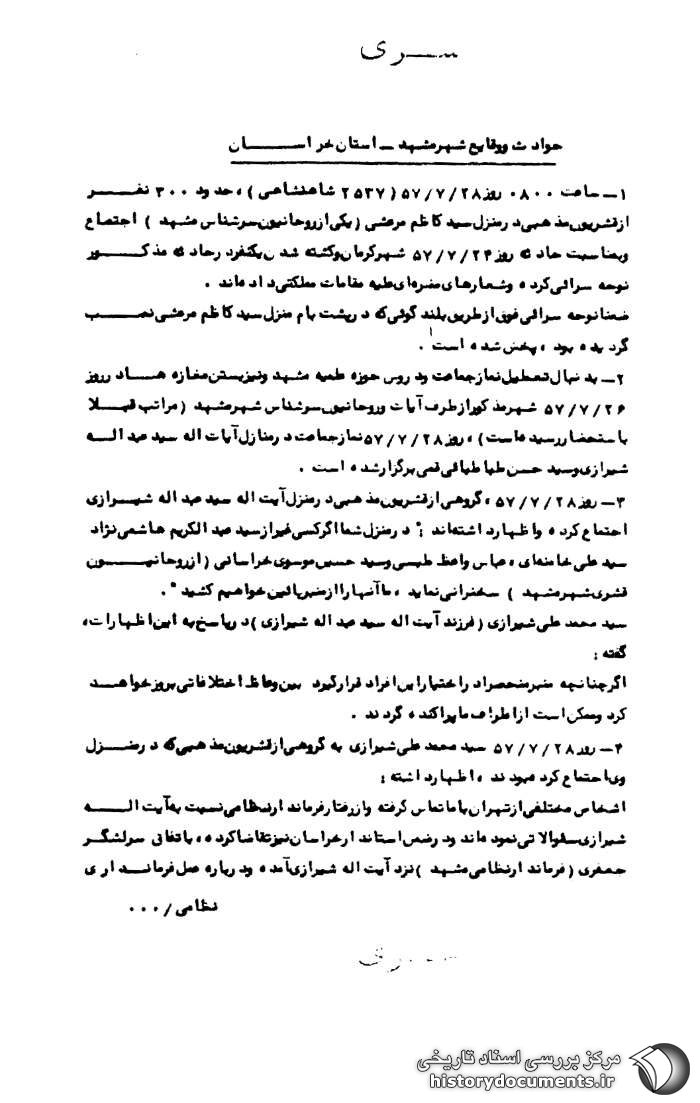 سری
حوادث ووقایع شهرمشهد ــ استان خراسان
۱ــ ساعت ۰۸۰۰ روز ۵۷/۷/۲۸ (۲۵۳۷ شاهنشاهی) ، حدود ۳۰۰ نفر
ازقشریون مذهبی در منزل سید کاظم مرعشی (یکی از روحانیون سرشناس مشهد) اجتماع
وبمناسبت حادثه روز ۵۷/۷/۲۴ شهرکرمان وکشته شدن یکنفر در حادثه مذکور
نوحه سرائی کرده وشعارهای مضره‌ای علیه مقامات مملکتی داده‌اند .
ضمنا نوحه سرائی فوق از طریق بلند گوئی که در پشت بام منزل سید کاظم مرعشی نصب
گردیده بود ، پخش شده است۱ .
۲ــ به دنبال تعطیل نماز جماعت و دروس حوزه علمیه مشهد ونیز بستن مغازه ها در روز
۵۷/۷/۲۶ شهر مذکور از طرف آیات وروحانیون سرشناس شهر مشهد (مراتب قبلا
باستحضار رسیده است) ، روز ۵۷/۷/۲۸ نماز جماعت در منازل آیات اله سید عبد اله
شیرازی وسید حسن طباطبائی قمی برگزار شده است .
۳ــ روز ۵۷/۷/۲۸ ، گروهی از قشریون مذهبی در منزل آیت اله سید عبد اله شیرازی
اجتماع کرده و اظهار داشته‌اند : " در منزل شما اگر کسی غیر از سید عبد الکریم هاشمی نژاد
سید علی خامنه‌ای ، عباس واعظ طبسی وسید حسین موسوی خراسانی (از روحانیون
قشری شهر مشهد) سخنرانی نماید ، ما آنها را از منبر پائین خواهیم کشید " .
سید محمد علی شیرازی (فرزند آیت اله سید عبد اله شیرازی) در پاسخ به این اظهارات ،
گفته :
اگر چنانچه منبر منحصرا در اختیار این افراد قرار گیرد بین وعاظ اختلافاتی بروز خواهد
کرد وممکن است از اطراف ما پراکنده گردند .
۴ــ روز ۵۷/۷/۲۸ سید محمد علی شیرازی به گروهی از قشریون مذهبی که در منزل
وی اجتماع کرده بودند ، اظهار داشته :
اشخاص مختلفی از تهران با ما تماس گرفته و از رفتار فرماندار نظامی نسبت به آیت اله
شیرازی سئوالاتی نموده‌اند و در ضمن استاندار خراسان نیز تقاضا کرده ، باتفاق سرلشگر
جعفری (فرماندار نظامی مشهد) نزد آیت اله شیرازی آمده و درباره عمل فرمانداری
نظامی/۰۰۰
سری
مرکز بررسی اسناد تاریخی
historydocuments.ir